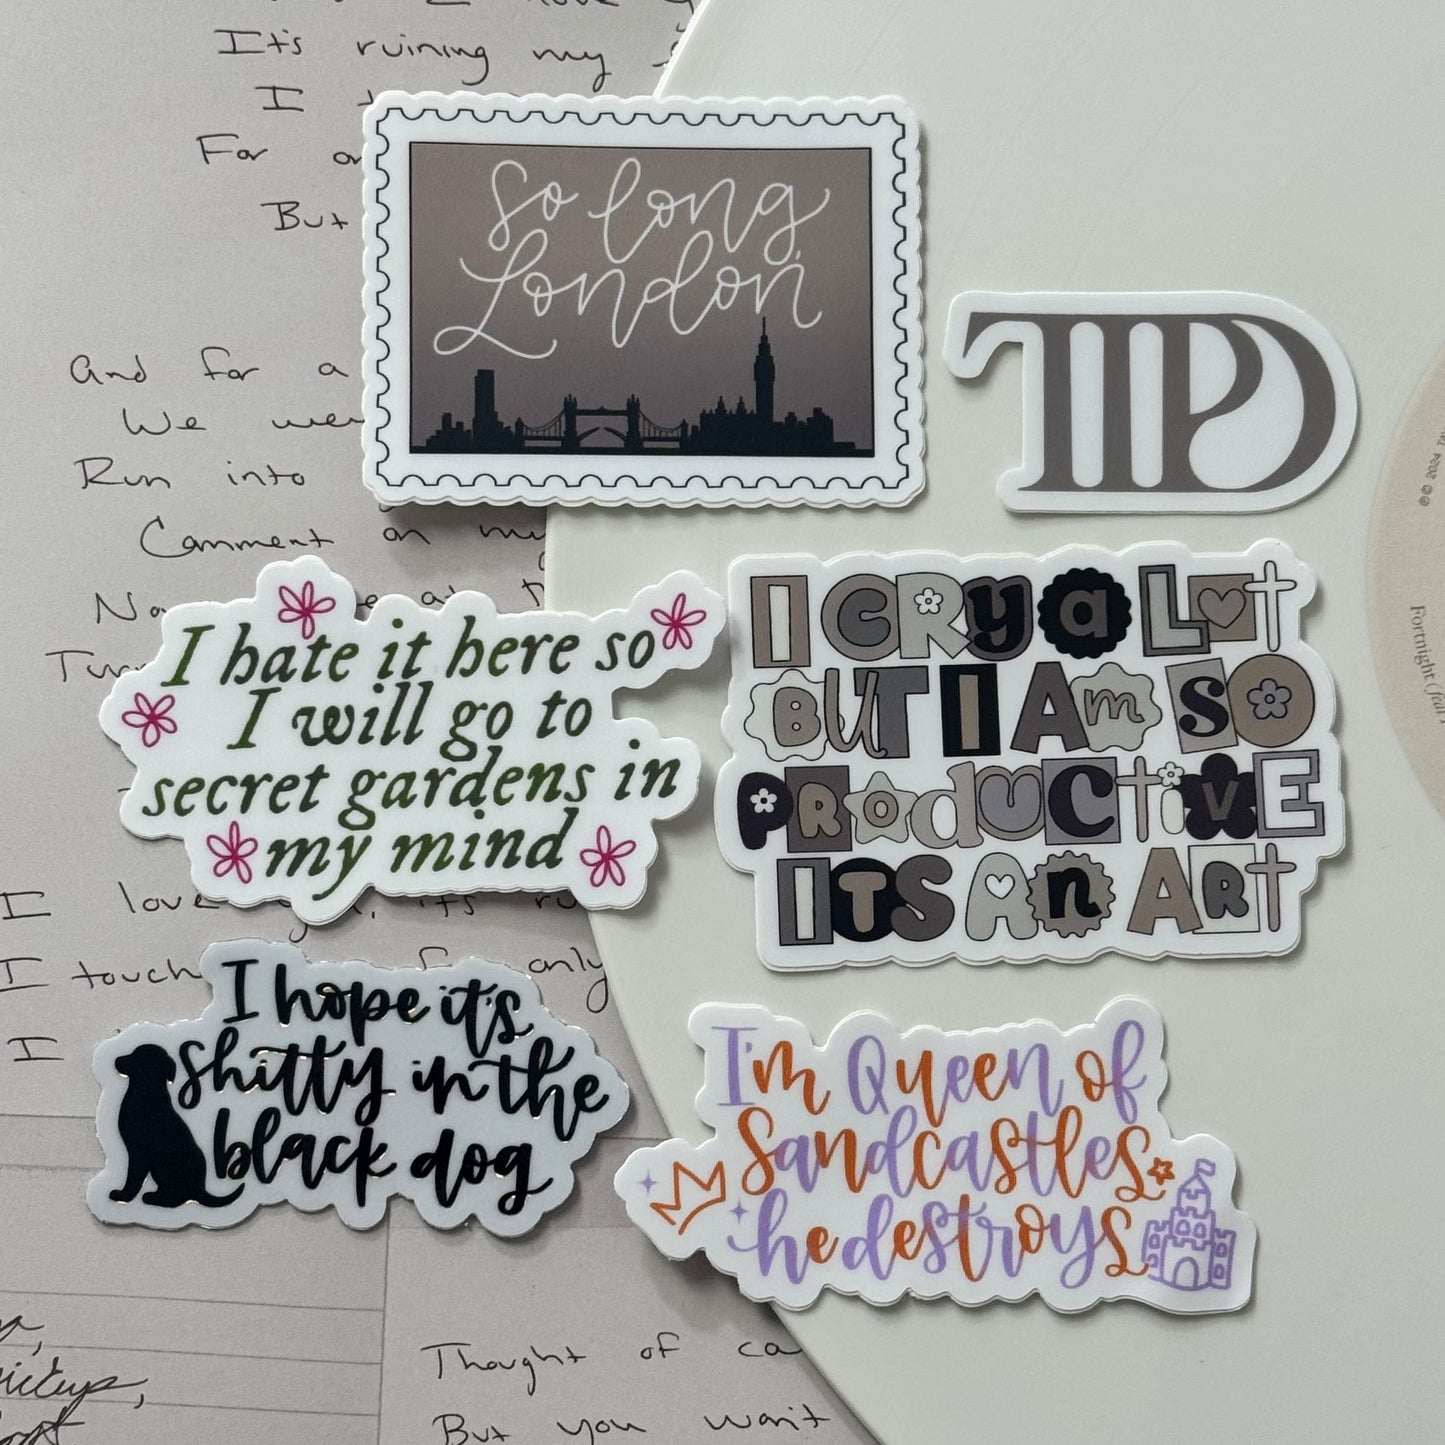 I love
It's ruining my
I
For
But
So long,
London
TTPD
And for a
We
Run into
Comment on my
I hate it here so
I will go to
secret gardens in
my mind
I CRY a Lot
BUT I Am SO
PRODUCTIVE
ITS AN ART
I love
it's
I touch
only
I
I hope it's
shitty in the
black dog
I'm Queen of
Sandcastles
he destroys
Thought of
But you won't
2024
Fortnight